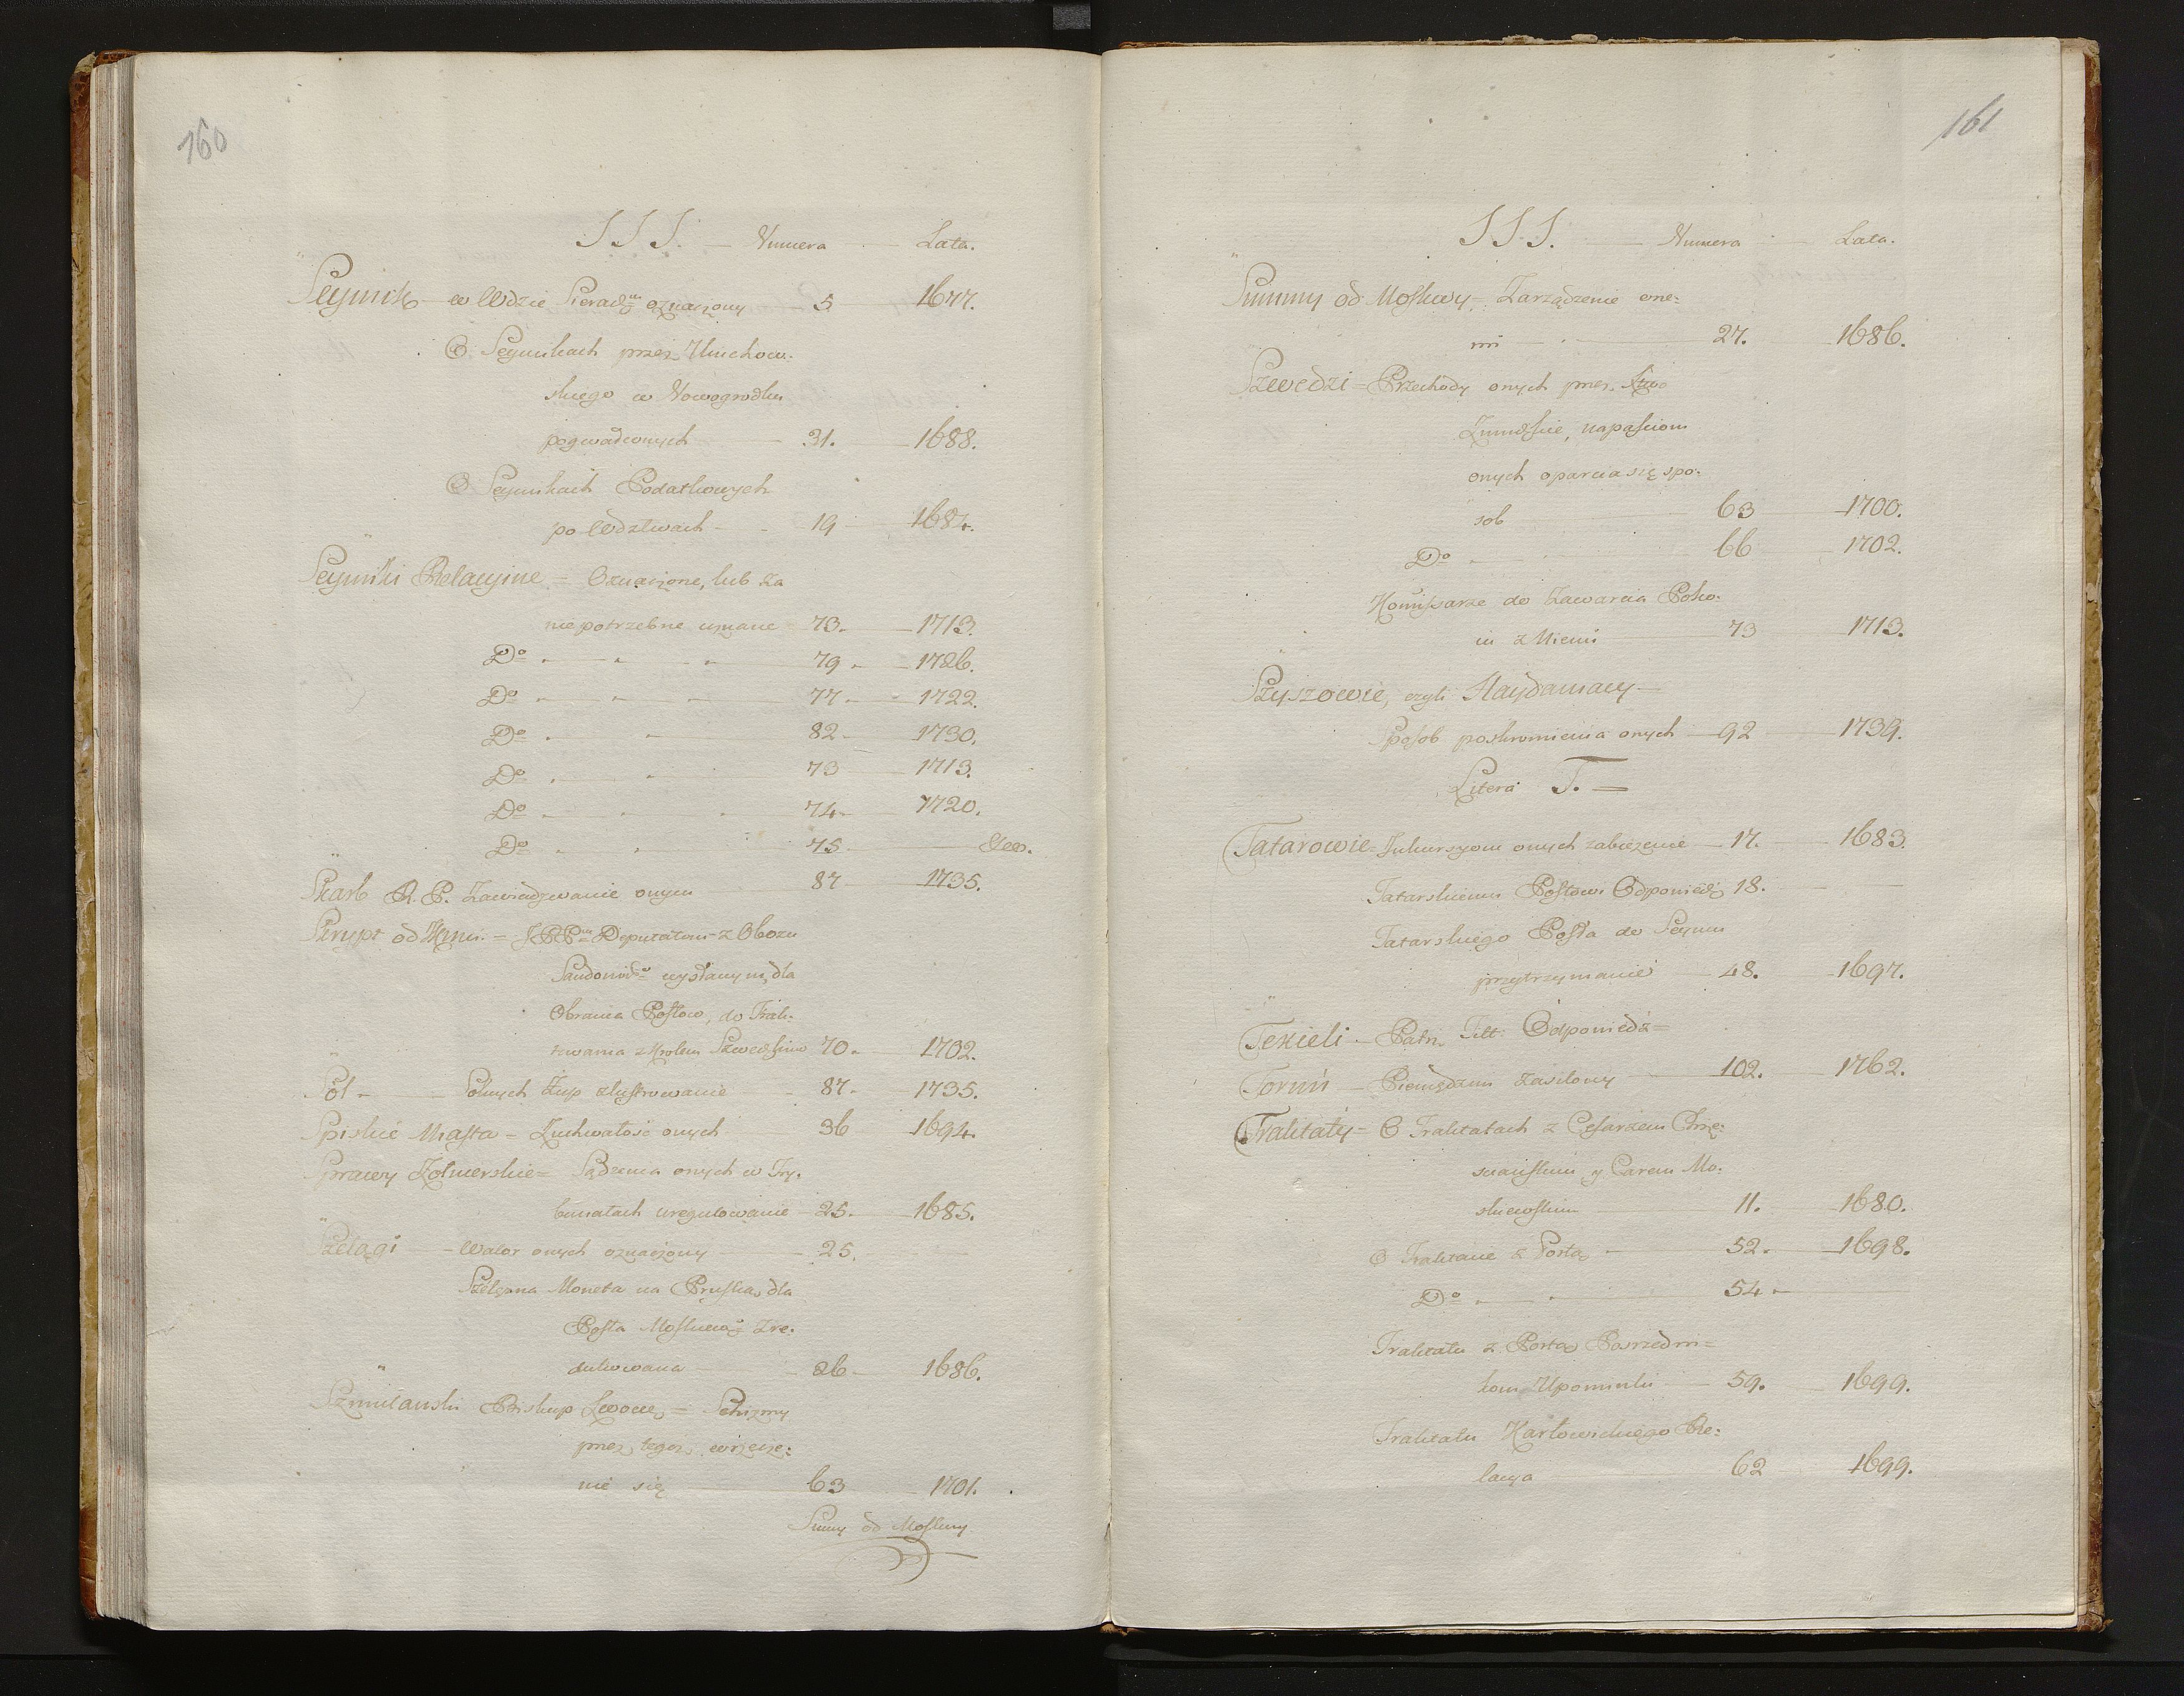 160
S S S. — Numera — Lata.
Seymik w Wdzie Sierad:m oznaczony 5 1677.
O Seymikach przez
skiego w Nowogrodku
31. 1688.
O Seymikach Podatkowych
po Wdztwach 19 1684.
Seymiki Relacyine = Oznaczone, lub za
niepotrzebne uznane 73. 1713.
Do 79 1726.
Do 77 1722.
Do 82 1730.
Do 73 1713.
Do 74 1720.
Do 75
Skarb R. P. Zawiadywanie onym 87 1735.
Skrypt od = Deputatom z Obozu
wysłanym, dla
Obrania Posłow, do Trak:
towania z Krolem Szwedskim 70. 1702.
Sol — Solnych Żup zlustrowanie 87. 1735.
Spiskie Miasta = Zuchwałość onych 36 1694.
Sprawy Żołnierskie = Sądzenia onych w Try:
bunałach uregulowanie 25. 1685.
Szelągi — Walor onych oznaczony 25.
Szelężna Moneta na Pruską, dla
Posła Moskiew:o Zre:
dukowana 26 1686.
Szmilanski Biskup Lwows: = Schizmy
przez tegoż wyrzecze:
nie się 63 1701.
Summy od Moskwy
161
S S S. — Numera — Lata.
Summy od Moskwy = Zarządzenie one:
mi 27. 1686.
Szwedzi = Przechody onych przez Xtwo
Zmudskie, napaściom
onych oparcia się spo:
sob 63 1700.
Do 66 1702.
Komissarze do Zawarcia Poko:
iu z Niemi 73 1713.
Szyszowie, czyli Haydamacy —
Sposob poskromienia onych 92 1739.
Litera T. =
Tatarowie = Inkursyom onych zabieżenie 17. 1683.
Tatarskiemu Posłowi Odpowiedź 18.
Tatarskiego Posła do Seymu
przytrzymanie 48. 1697.
Tekieli — Patr. Tit: Odpowiedź =
Toruń — Pieniędzmi zasilony 102. 1762.
Traktaty = O Traktatach z Cesarzem Chrze:
scianskim y Carem Mo:
skiewskim 11. 1680.
O Traktacie z Portą 52. 1698.
Do 54
Traktatu z Portą Posrzedni=
kom Upominki 59. 1699.
Traktatu Karłowickiego Re:
lacya 62 1699.